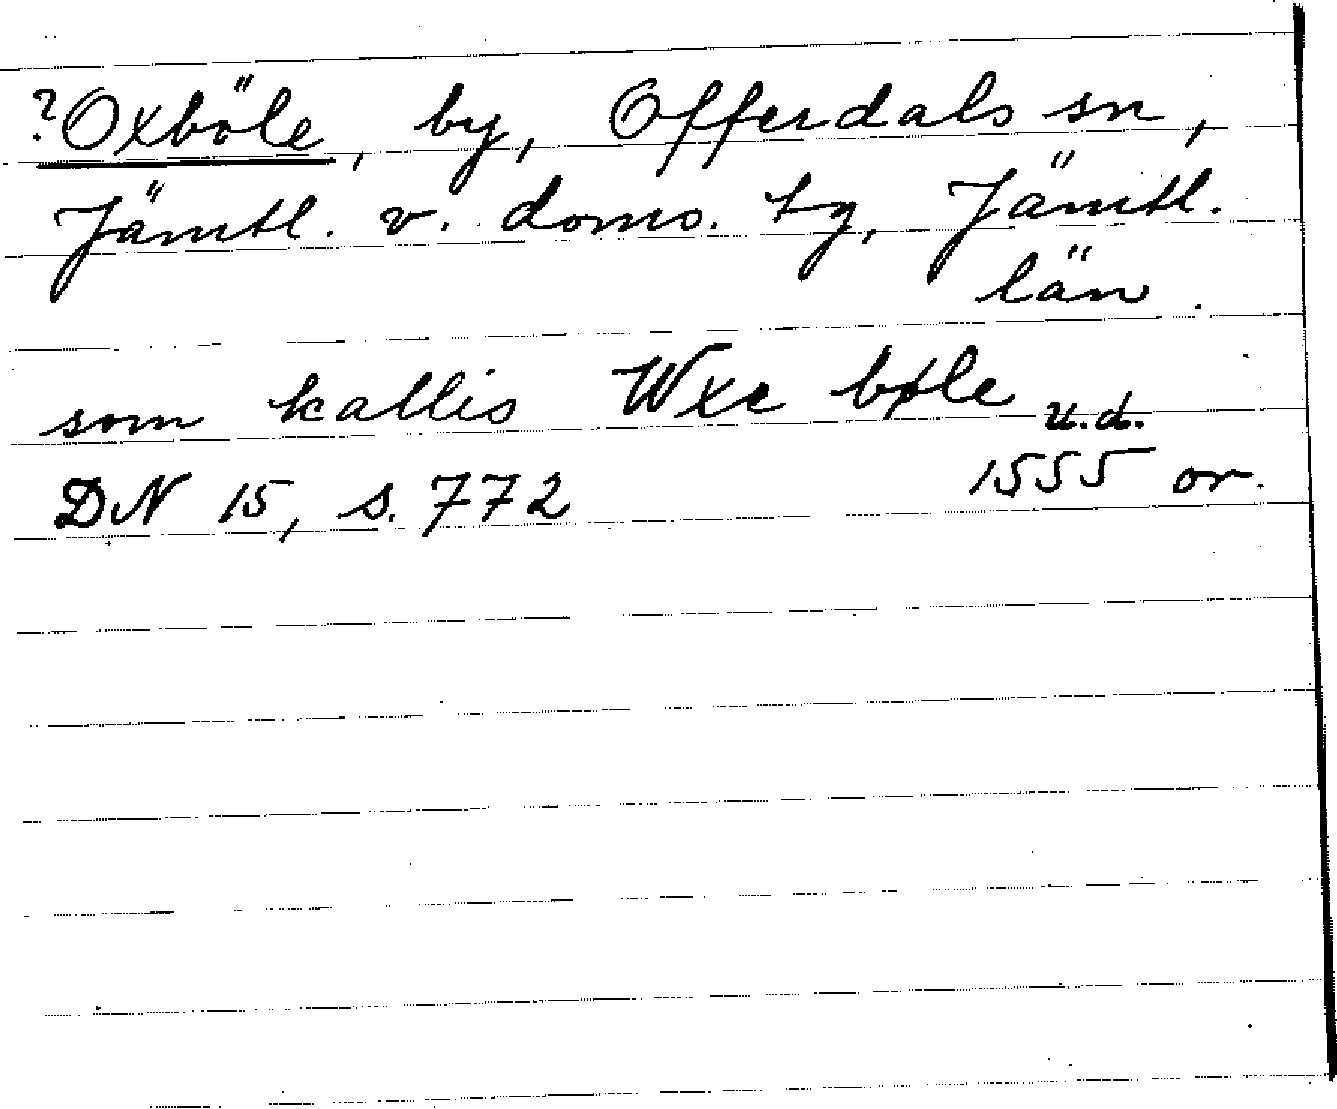 ?Oxböle, by, Offerdals sn,
Jämtl. v. doms. tg, Jämtl.
län.
som kallis Wxe bøle u.d.
DN 15, s. 772 1555 or.